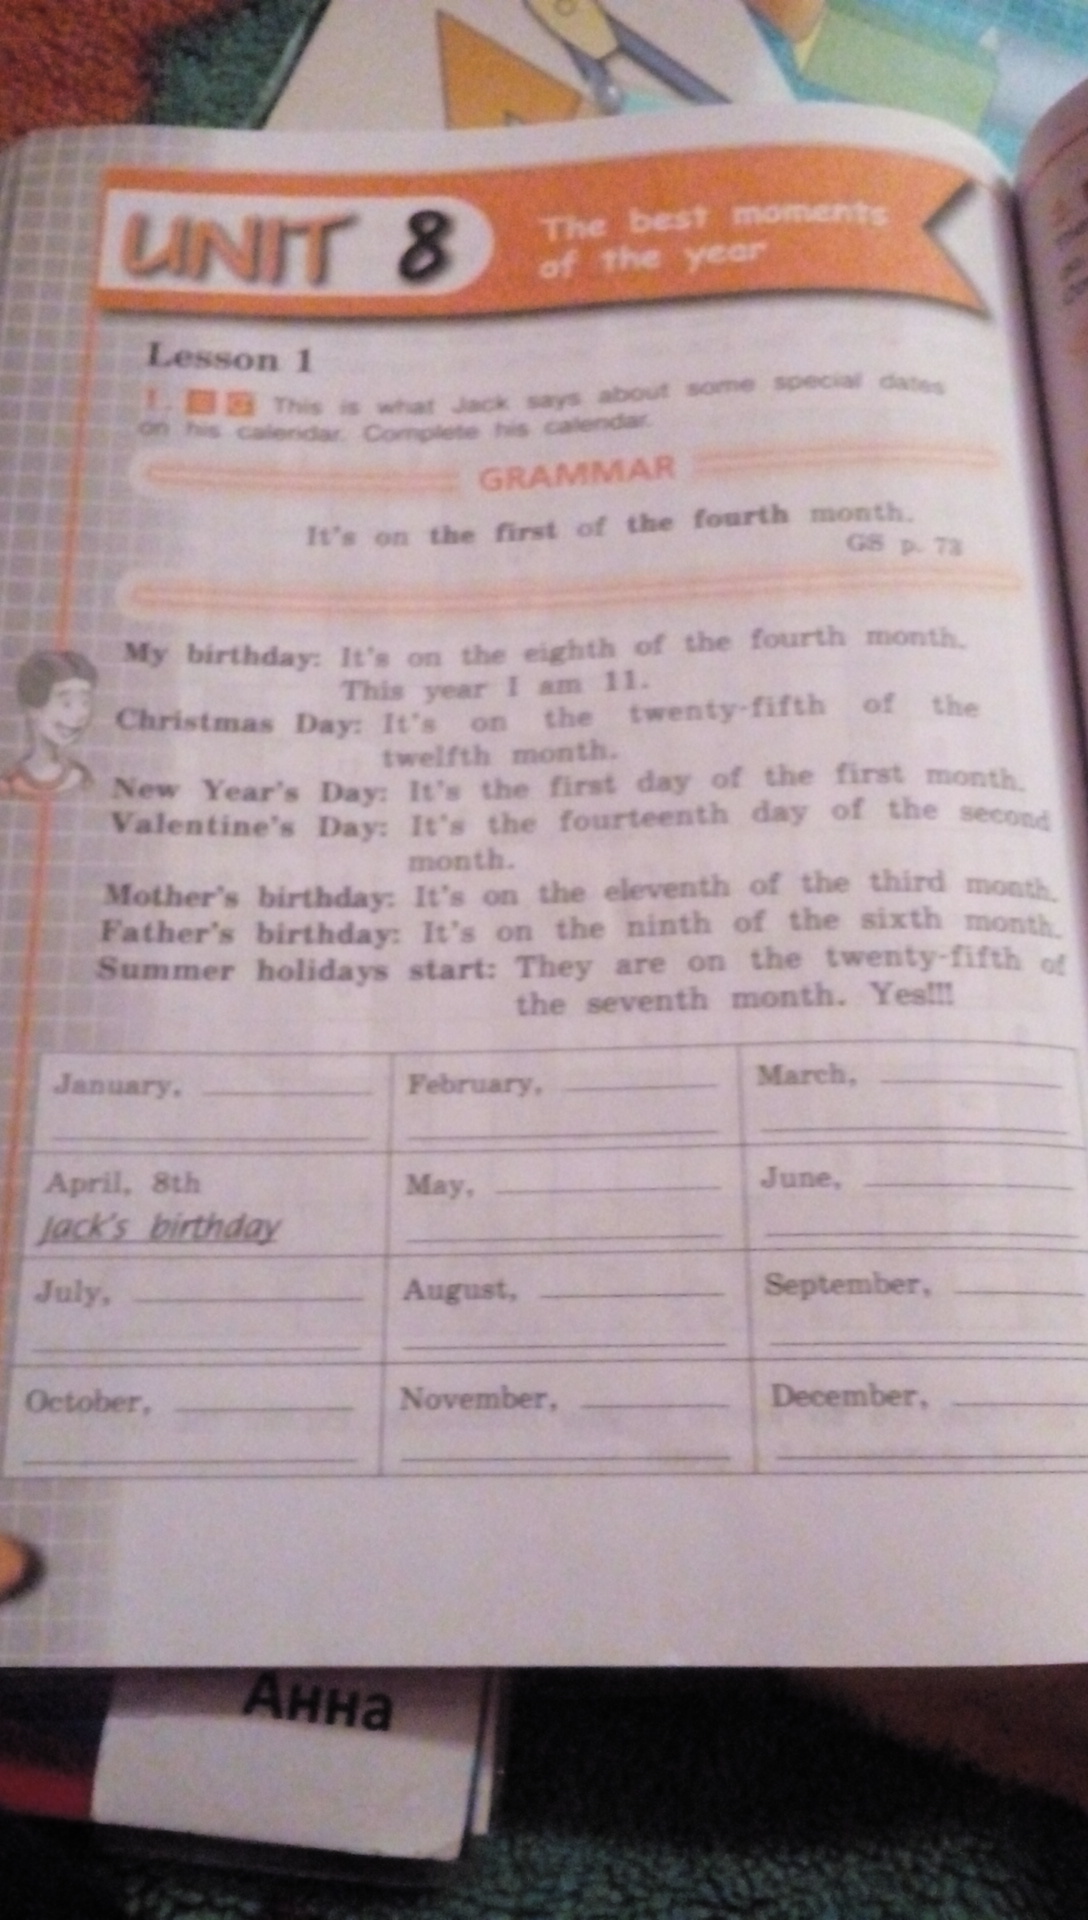 UNIT 8
The best moments
of the year
Lesson 1
1. This is what Jack says about some special dates
on his calendar. Complete his calendar.
GRAMMAR
It's on the first of the fourth month.
GS p. 73
My birthday: It's on the eighth of the fourth month.
This year I am 11.
Christmas Day: It's on the twenty-fifth of the
twelfth month.
New Year's Day: It's the first day of the first month.
Valentine's Day: It's the fourteenth day of the second
month.
Mother's birthday: It's on the eleventh of the third month.
Father's birthday: It's on the ninth of the sixth month.
Summer holidays start: They are on the twenty-fifth of
the seventh month. Yes!!!
January, February, March,
April, 8th May, June,
Jack's birthday
July, August, September,
October, November, December,
Анна